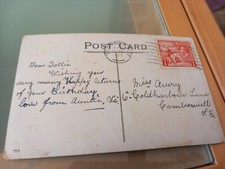 POST CARD
Dear Dollie
Wishing you
very many Happy Returns
of your Birthday
love from Auntie
Miss Avery
Coldharbour Lane
Camberwell
S.E.